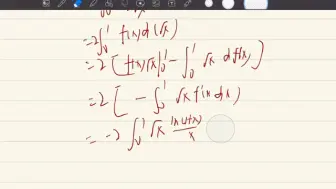 =2∫₀¹ f(x) d(√x)
=2[ f(x)√x|₀¹ - ∫₀¹ √x df(x) ]
=2[ -∫₀¹ √x f'(x) dx )
= -2 ∫₀¹ √x ln(1+x)/x